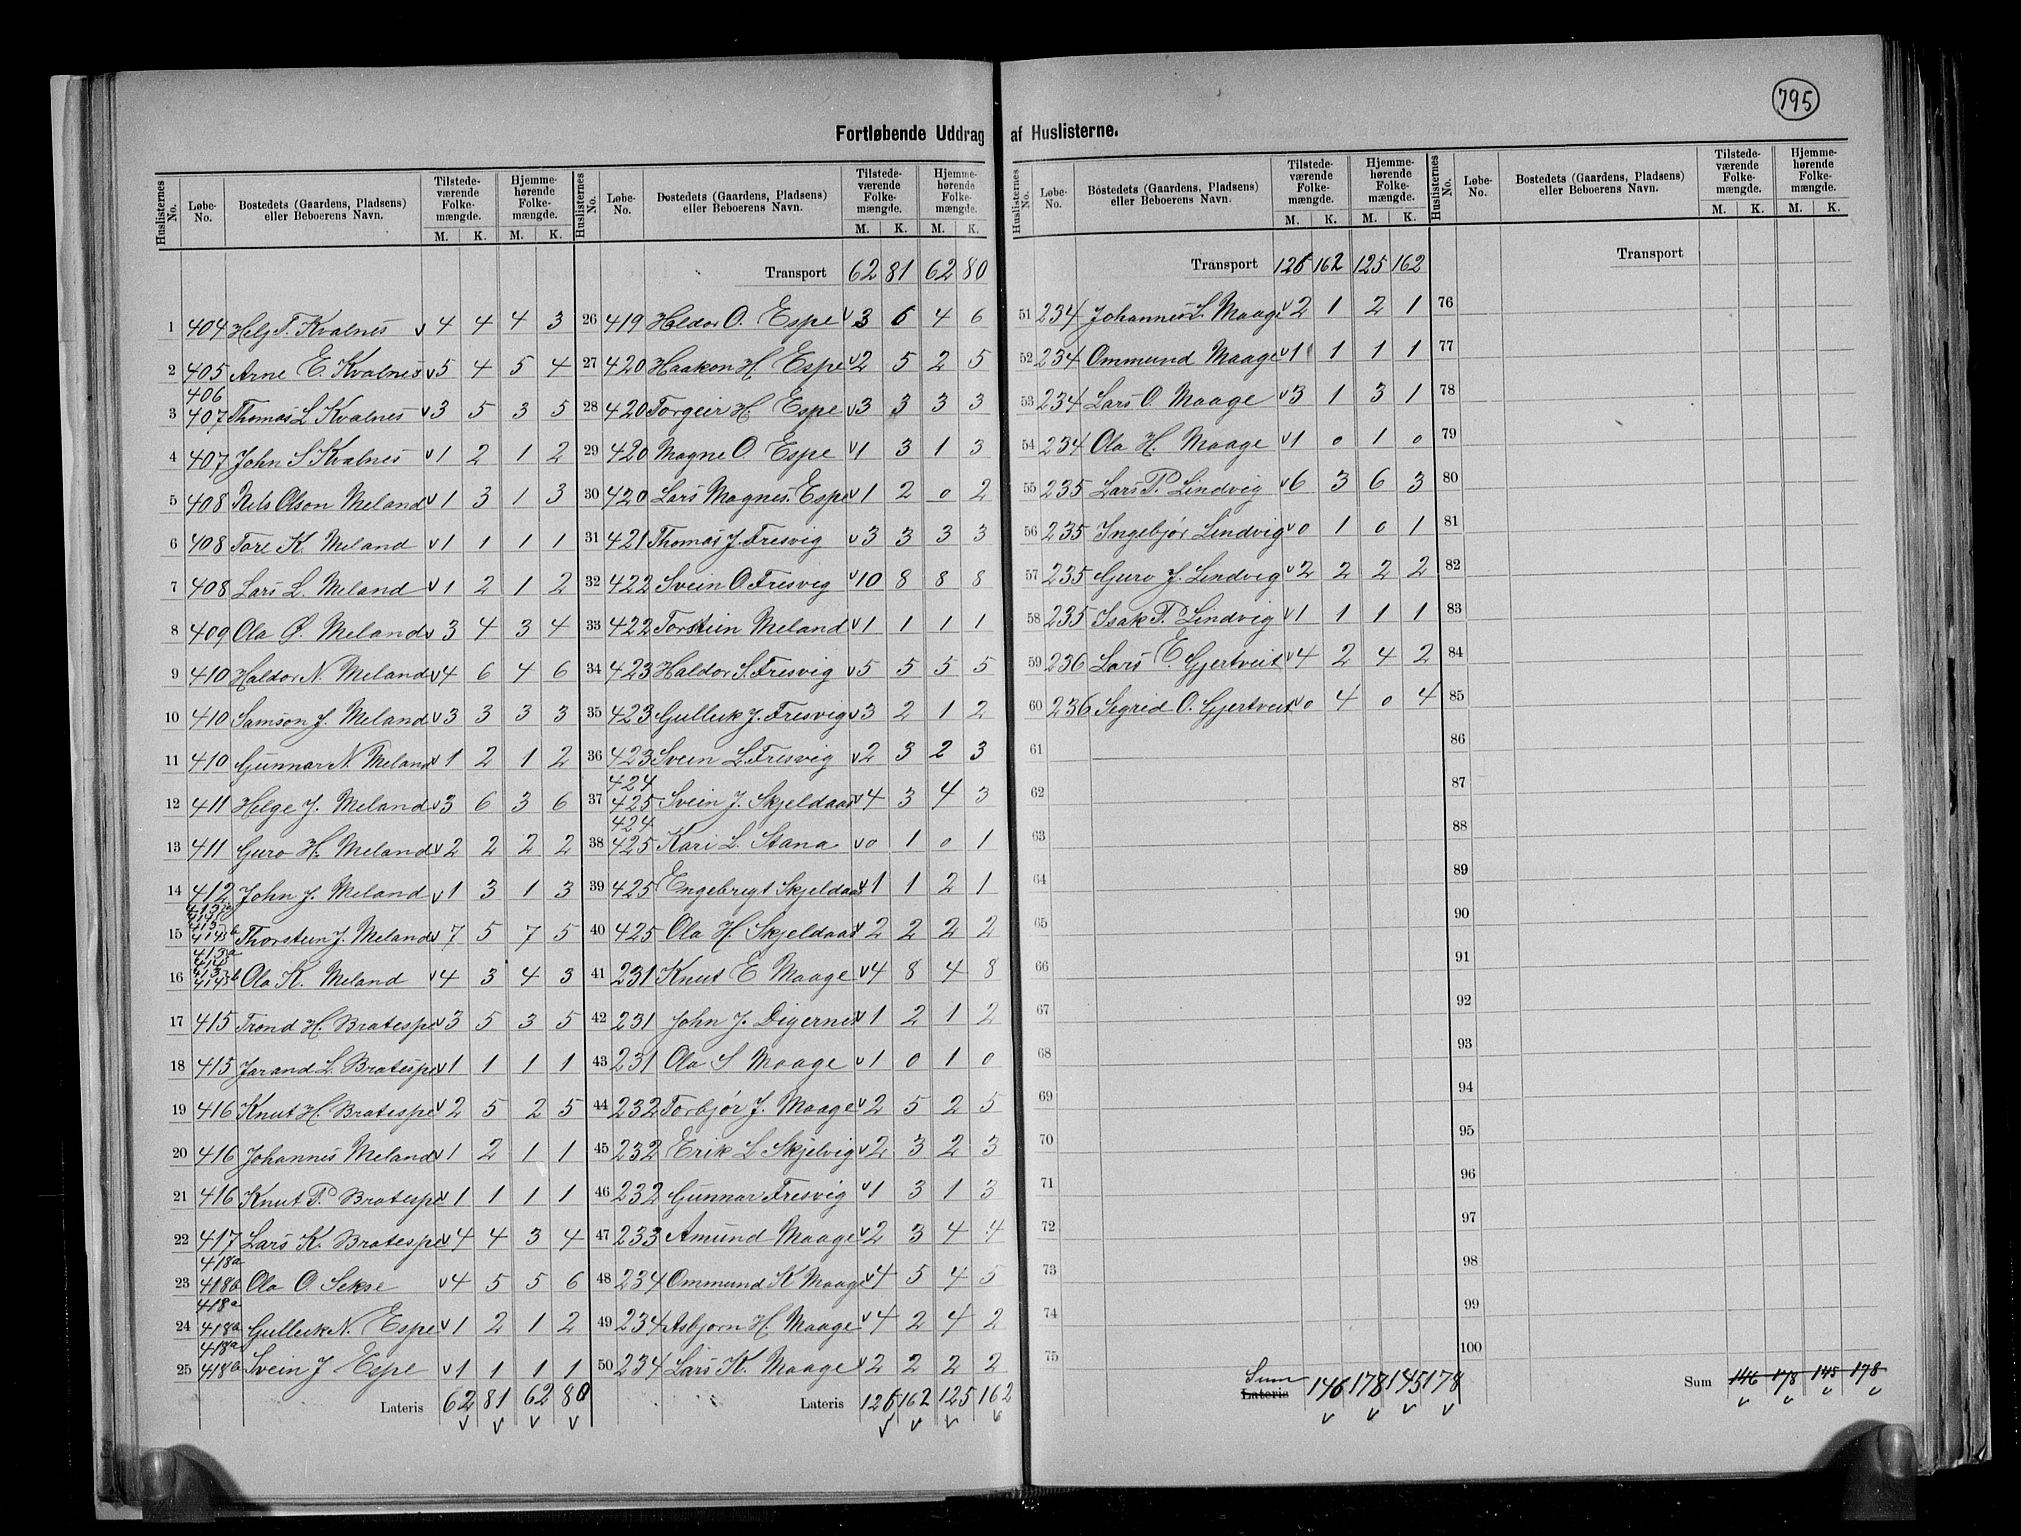 795
Fortløbende Uddrag af Huslisterne.
Huslisternes No. Løbe-No. Bostedets (Gaardens, Pladsens) eller Beboerens Navn. Tilstedeværende Folkemængde. M. K. Hjemmehørende Folkemængde. M. K.
1 404 Helj T. Kvalnes v 4 4 4 3
2 405 Arne E. Kvalnes v 5 4 5 4
3 406 407 Thomas L Kvalnes v 3 5 3 5
4 407 John S Kvalnes v 1 2 1 2
5 408 Nils Olson Meland v 1 3 1 3
6 408 Tore K. Meland v 1 1 1 1
7 408 Lars L. Meland v 1 2 1 2
8 409 Ola Ø. Meland v 3 4 3 4
9 410 Haldor N. Meland v 4 6 4 6
10 410 Samson J. Meland v 3 3 3 3
11 410 Gunnar N. Meland v 1 2 1 2
12 411 Helge J. Meland v 3 6 3 6
13 411 Guro H. Meland v 2 2 2 2
14 412 John J. Meland v 1 3 1 3
15 Thorstein J. Meland v 7 5 7 5
16 Ola K. Meland v 4 3 4 3
17 415 Trond H. Bratespe v 3 5 3 5
18 415 Jarand L. Bratespe v 1 1 1 1
19 416 Knut H. Bratespe v 2 5 2 5
20 416 Johannes Meland v 1 2 1 1
21 416 Knut P. Bratespe v 1 1 1 1
22 417 Lars K. Bratespe v 4 4 3 4
23 418a 418b Ola O. Sekse v 4 5 5 6
24 418a 418b Gulleik N. Espe v 1 2 1 2
25 418a 418b Svein J Espe v 1 1 1 1
Lateris 62 81 62 80
v v v v
Huslisternes No. Løbe-No. Bostedets (Gaardens, Pladsens) eller Beboerens Navn. Tilstedeværende Folkemængde. M. K. Hjemmehørende Folkemængde. M. K.
Transport 62 81 62 80
26 419 Haldor O. Espe v 3 6 4 6
27 420 Haakon H Espe v 2 5 2 5
28 420 Torgeir H Espe v 3 3 3 3
29 420 Magne O. Espe v 1 3 1 3
30 420 Lars Magnes. Espe v 1 2 0 2
31 421 Thomas J. Fresvig v 3 3 3 3
32 422 Svein O. Fresvig v 10 8 8 8
33 422 Torstein Meland v 1 1 1 1
34 423 Haldor S. Fresvig v 5 5 5 5
35 423 Gulleik J. Fresvig v 3 2 1 2
36 423 Svein L. Fresvig v 2 3 2 3
37 424 425 Svein J. Skjeldaas v 4 3 4 3
38 424 425 Kari L. Stana v 0 1 0 1
39 425 Engebregt Skjeldaas v 1 1 2 1
40 425 Ola H. Skjeldaas v 2 2 2 2
41 231 Knut E Maage v 4 8 4 8
42 231 John J. Digernes v 1 2 1 2
43 231 Ola S Maage v 1 0 1 0
44 232 Torbjør J. Maage v 2 5 2 5
45 232 Erik L Skjelvig v 2 3 2 3
46 232 Gunnar Fresvig v 1 3 1 3
47 233 Amund Maage v 2 3 4 4
48 234 Ommund K Maage v 4 5 4 5
49 234 Asbjørn H. Maage v 4 2 4 2
50 234 Lars K. Maage v 2 2 2 2
Lateris 126 162 125 162
v v v v
Huslisternes No. Løbe-No. Bostedets (Gaardens, Pladsens) eller Beboerens Navn. Tilstedeværende Folkemængde. M. K. Hjemmehørende Folkemængde. M. K.
Transport 126 162 125 162
51 234 Johannes L. Maage v 2 1 2 1
52 234 Ommund Maage v 1 1 1 1
53 234 Lars O. Maage v 3 1 3 1
54 234 Ola H. Maage v 1 0 1 0
55 235 Lars P. Lindvig v 6 3 6 3
56 235 Ingebjør Lindvig v 0 1 0 1
57 235 Guro J. Lindvig v 2 2 2 2
58 235 Isak P. Lindvig v 1 1 1 1
59 236 Lars E. Gjertveit v 4 2 4 2
60 236 Sigrid O. Gjertveit v 0 4 0 4
61
62
63
64
65
66
67
68
69
70
71
72
73
74
75
Sum
Lateris 146 178 145 178
v v v v
Huslisternes No. Løbe-No. Bostedets (Gaardens, Pladsens) eller Beboerens Navn. Tilstedeværende Folkemængde. M. K. Hjemmehørende Folkemængde. M. K.
Transport
76
77
78
79
80
81
82
83
84
85
86
87
88
89
90
91
92
93
94
95
96
97
98
99
100
Sum 146 178 145 178
v v v v